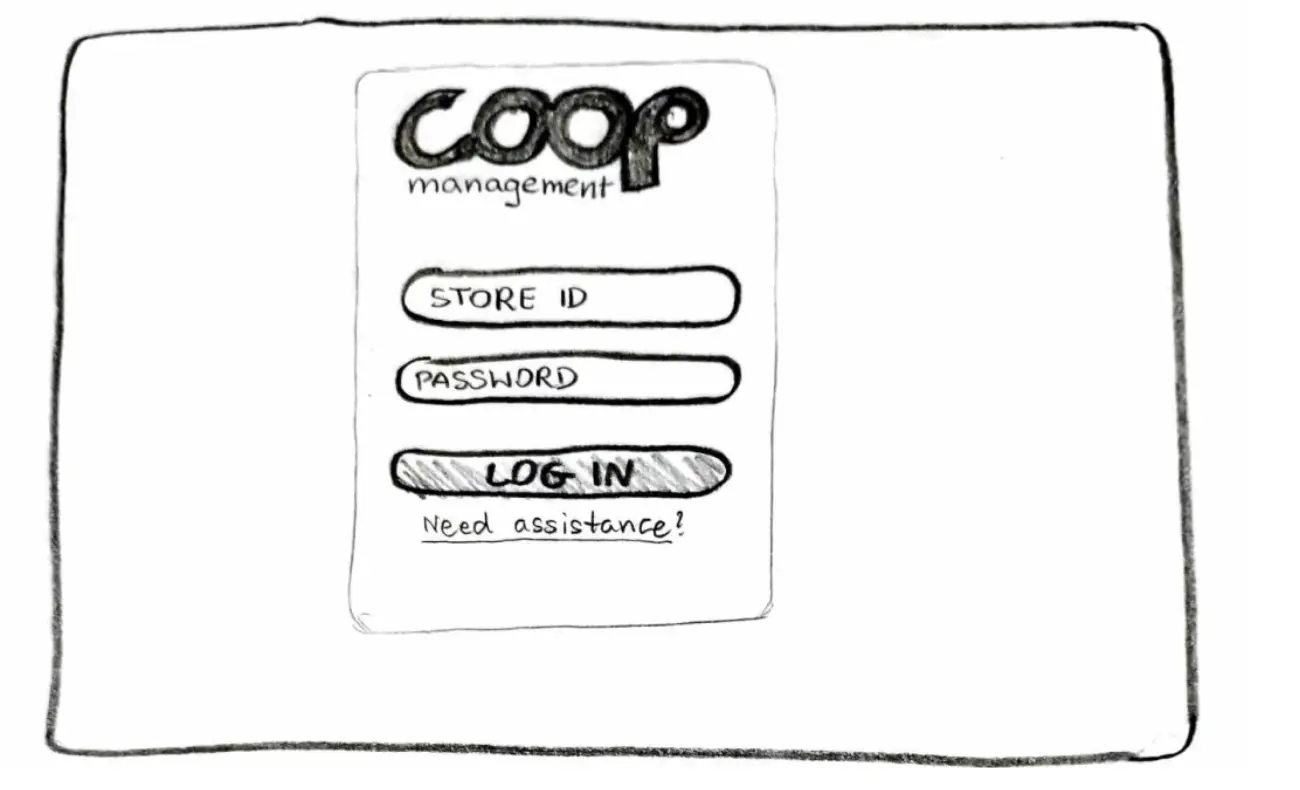 coop
management
STORE ID
PASSWORD
LOG IN
Need assistance?